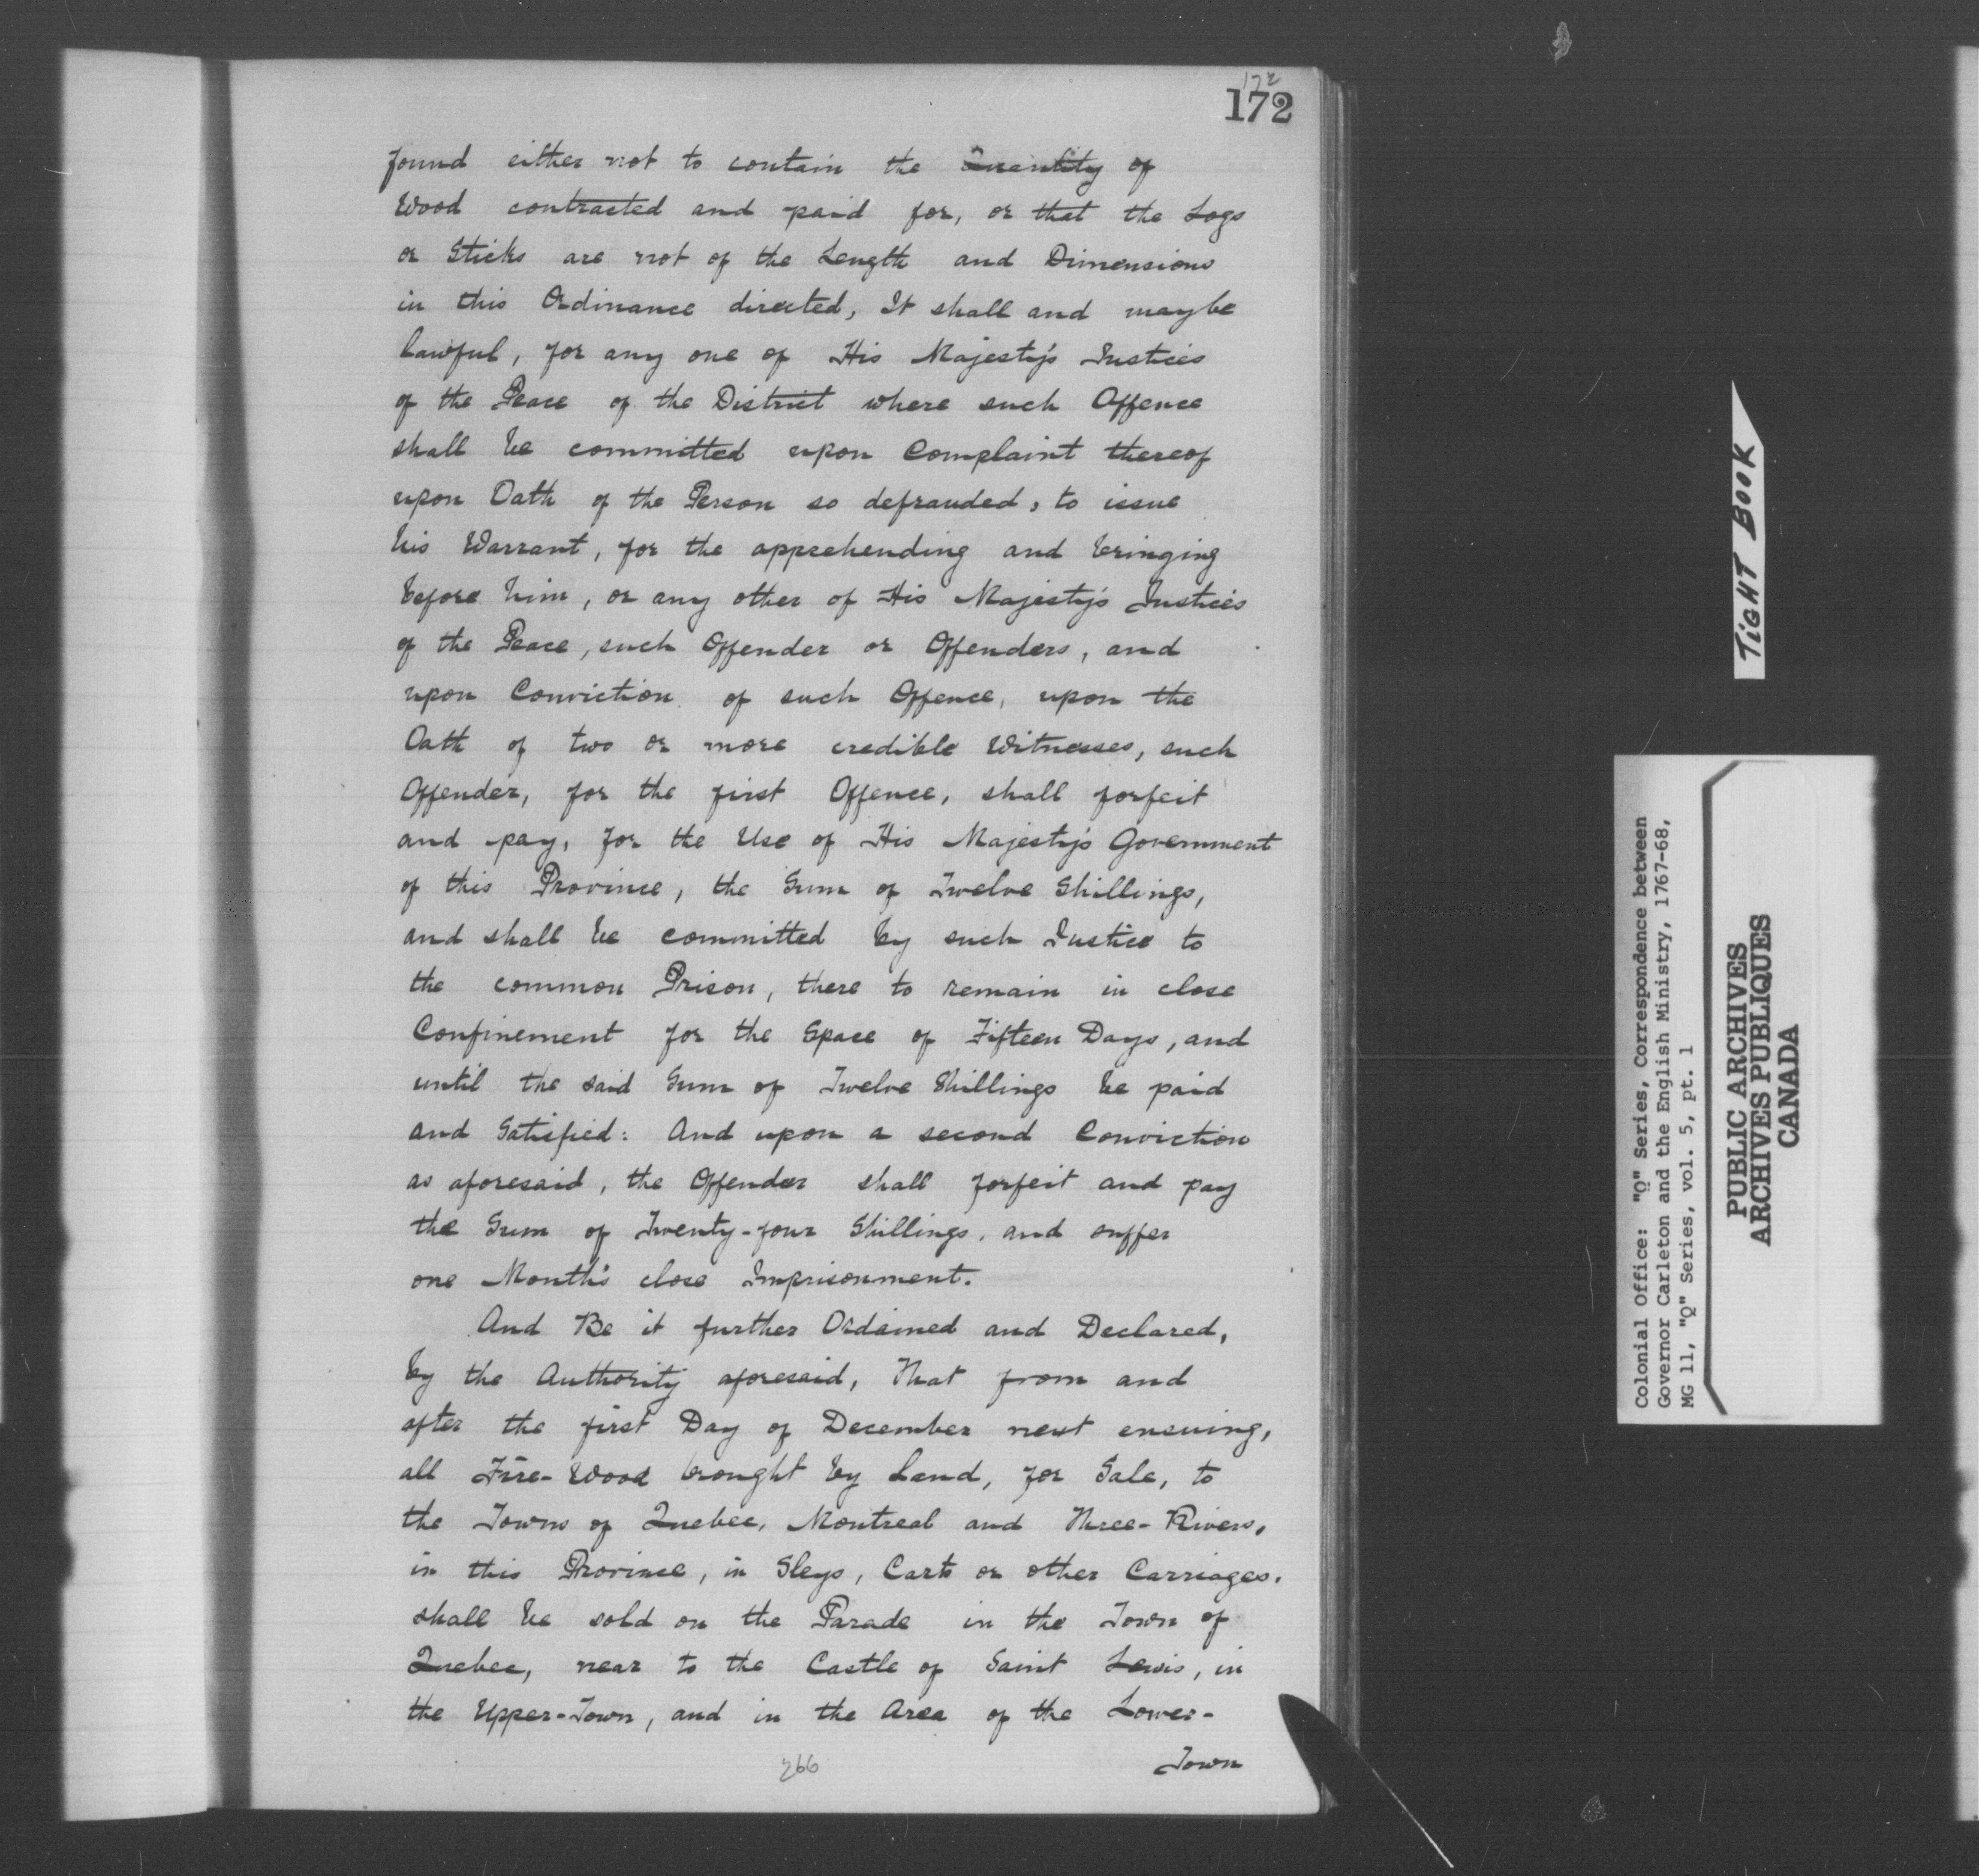 172
172
found either not to contain the Quantity of
Wood contracted and paid for, or that the Logs
or Sticks are not of the Length and Dimensions
in this Ordinance directed, It shall and maybe
lawful, for any one of His Majesty's Justices
of the Peace of the District where such Offence
shall be committed upon Complaint thereof
upon Oath of the Person so defrauded, to issue
his Warrant, for the apprehending and bringing
before him, or any other of His Majesty's Justices
of the Peace, such Offender or Offenders, and
upon Conviction of such Offence, upon the
Oath of two or more credible Witnesses, such
Offender, for the first Offence, shall forfeit
and pay, for the Use of His Majesty's Government
of this Province, the Sum of Twelve Shillings,
and shall be committed by such Justice to
the common Prison, there to remain in close
Confinement for the Space of Fifteen Days, and
until the said Sum of Twelve Shillings be paid
and Satisfied: And upon a second Conviction
as aforesaid, the Offender shall forfeit and pay
the Sum of Twenty-four Shillings, and suffer
one Month's close Imprisonment.
And Be it further Ordained and Declared,
by the Authority aforesaid, That from and
after the first Day of December next ensuing,
all Fire-Wood brought by Land, for Sale, to
the Towns of Quebec, Montreal and Three-Rivers,
in this Province, in Sleys, Carts or other Carriages.
shall be sold on the Parade in the Town of
Quebec, near to the Castle of Saint Lewis, in
the Upper-Town, and in the Area of the Lower-
Town
266
TIGHT BOOK
Colonial Office: "Q" Series, Correspondence between
Governor Carleton and the English Ministry, 1767-68,
MG 11, "Q" Series, vol. 5, pt. 1
PUBLIC ARCHIVES
ARCHIVES PUBLIQUES
CANADA